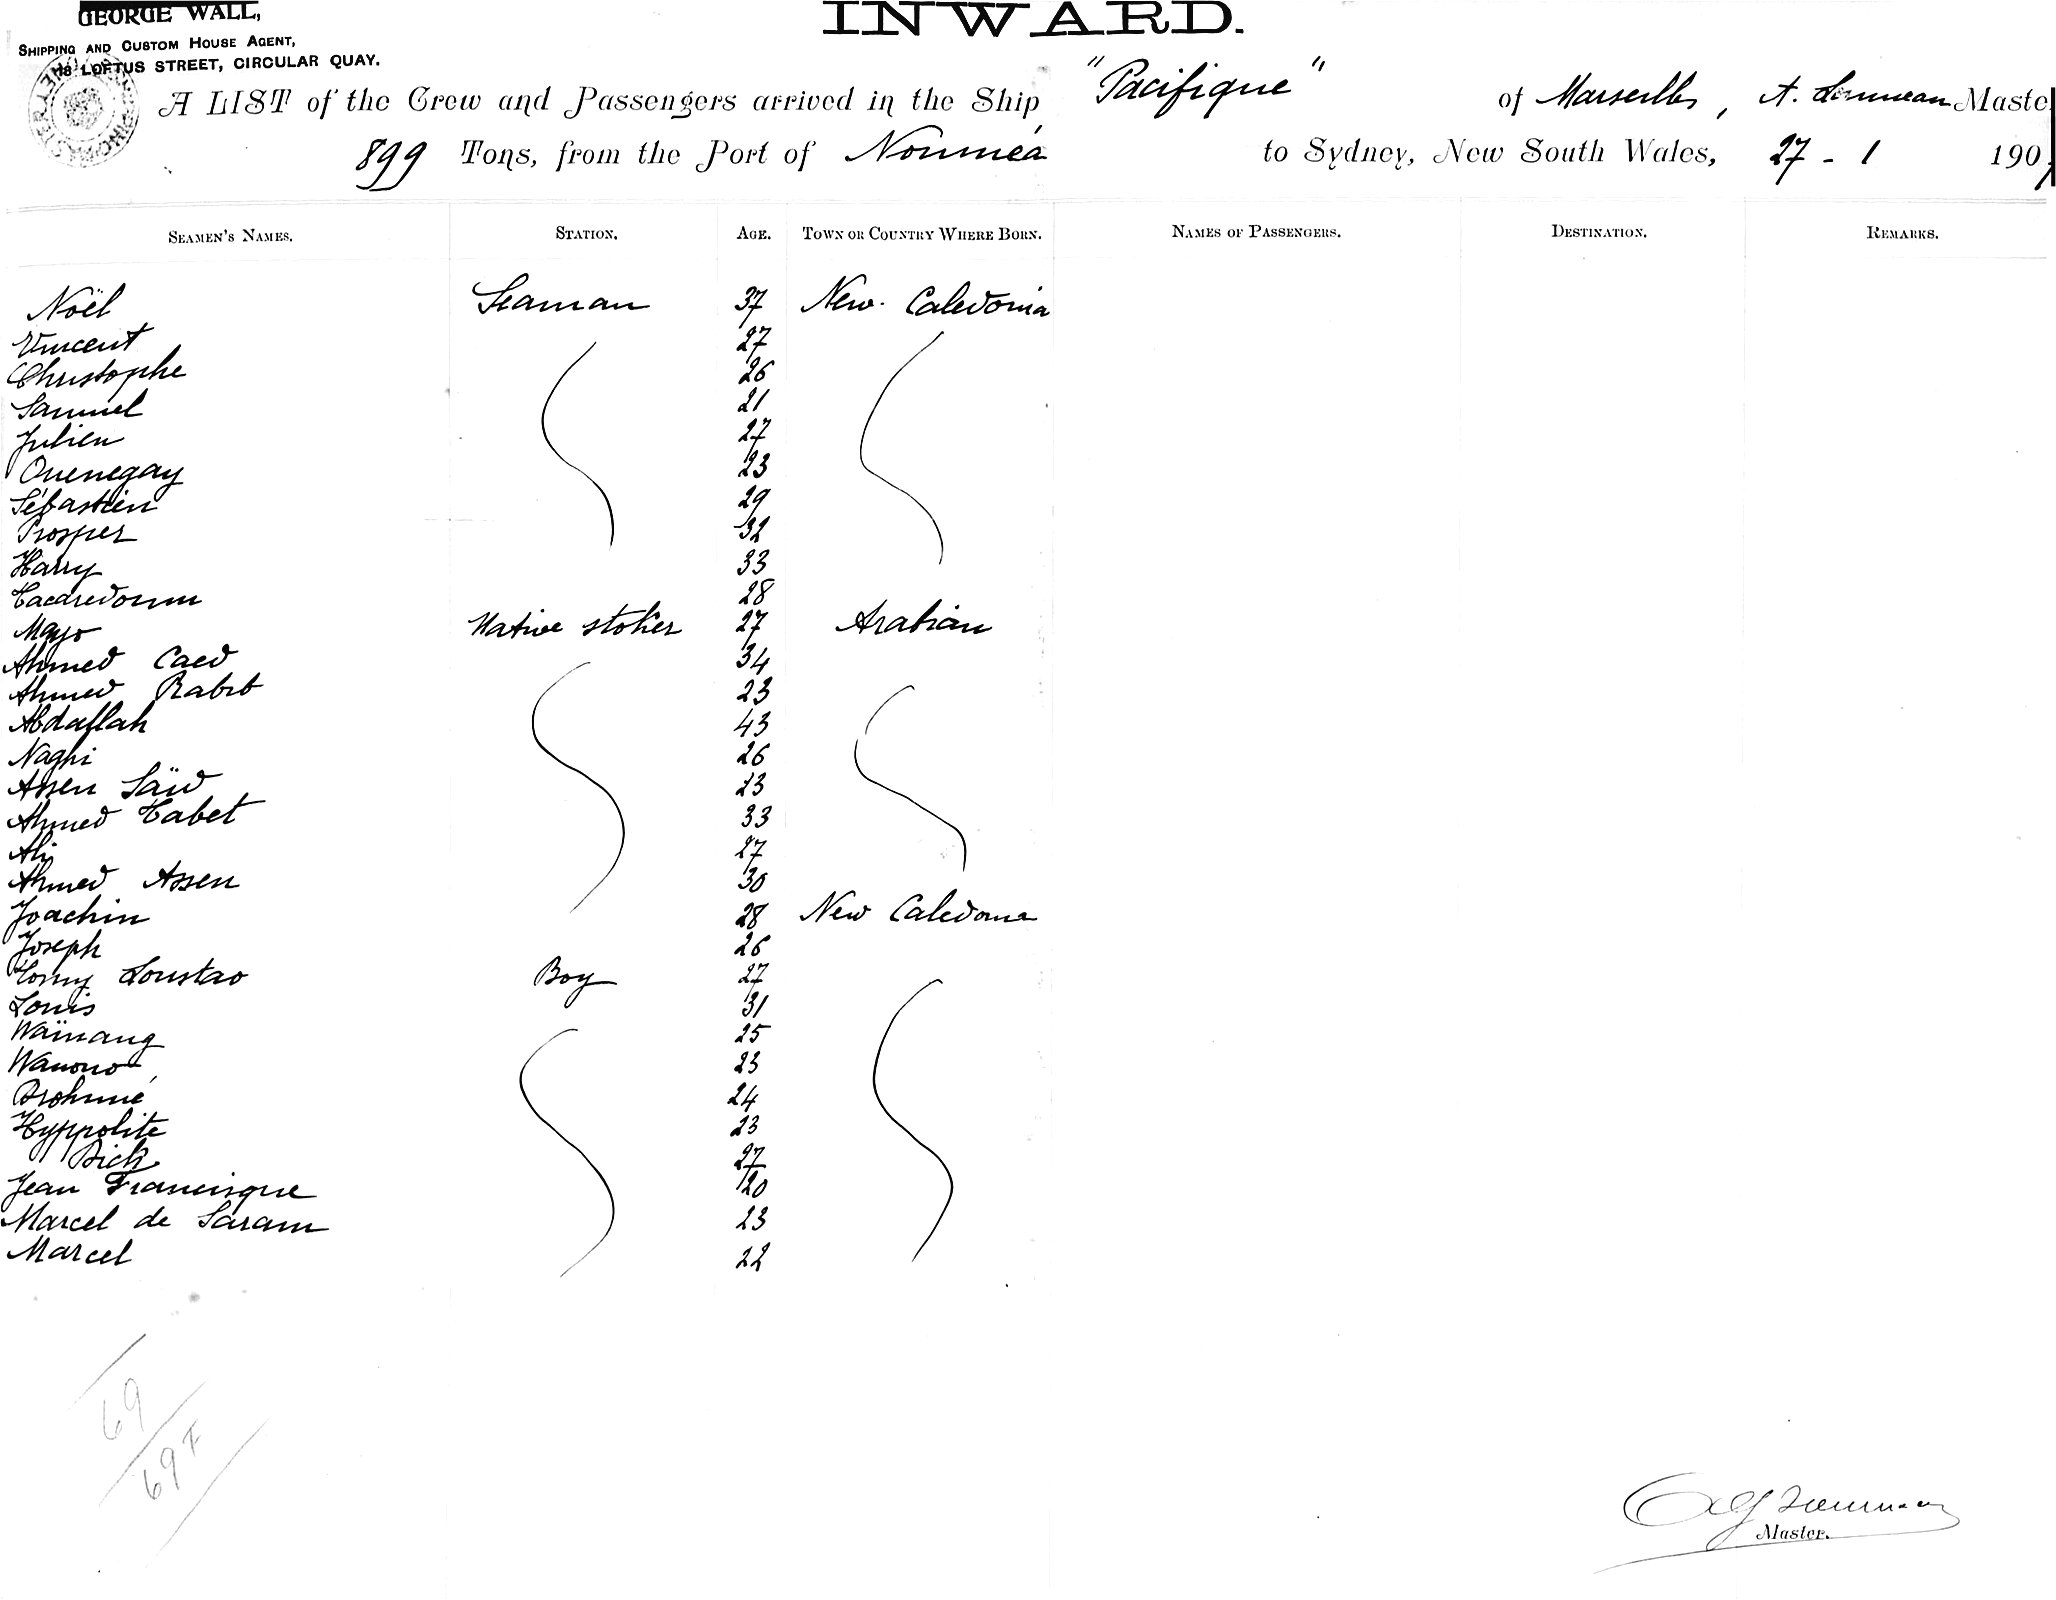 GEORGE WALL,
SHIPPING AND CUSTOM HOUSE AGENT,
18 LOFTUS STREET, CIRCULAR QUAY.
INWARD.
A LIST of the Crew and Passengers arrived in the Ship "Pacifique" of Marseilles, A. Master
899 Tons, from the Port of Nouméa to Sydney, New South Wales, 27-1 190
SEAMEN'S NAMES. STATION. AGE. TOWN OR COUNTRY WHERE BORN. NAMES OF PASSENGERS. DESTINATION. REMARKS.
Noël Seaman 37 New. Caledonia
Vincent 27
Christophe 26
Samuel 21
Julien 27
Ouenegay 23
Sébastien 29
Prosper 32
Harry 33
28
Mayo Native stoker 27 Arabian
Ahmed Caed 34
Ahmed Rabet 23
Abdallah 43
Naghi 26
Assen Saïd 23
Ahmed Tabet 33
Ali 27
Ahmed Assen 30
Joachin 28 New Caledonia
Joseph 26
Tomy Loustao Boy 27
Louis 31
Waïnang 25
Wanono 23
Brohmé 24
Hyppolite 23
Dick 27
Jean Francisque 20
Marcel de Saram 23
Marcel 22
69
69 F
Master.